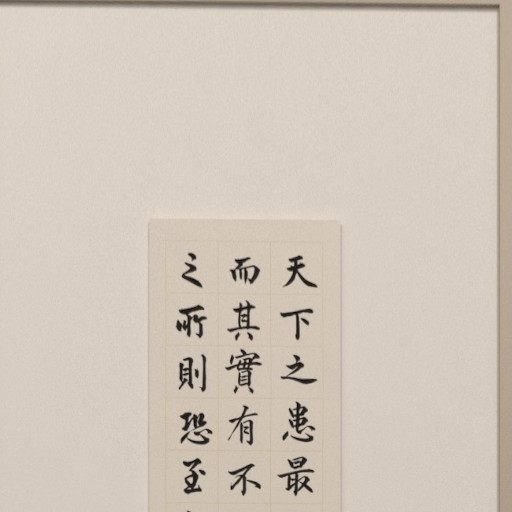 天下之患最
而其實有不
之所則恐至